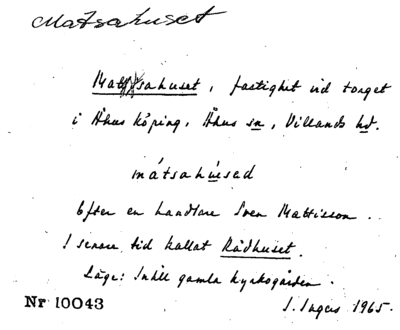 Matsahuset
Matsahuset, fastighet vid torget
i Åhus köping, Åhus sn, Villands hd.
mátsahùsəd
Efter en handlare Sven Mattisson.
I senare tid kallat Rådhuset.
Läge: Intill gamla kyrkogården.
Nr 10043 I. Ingers 1965.